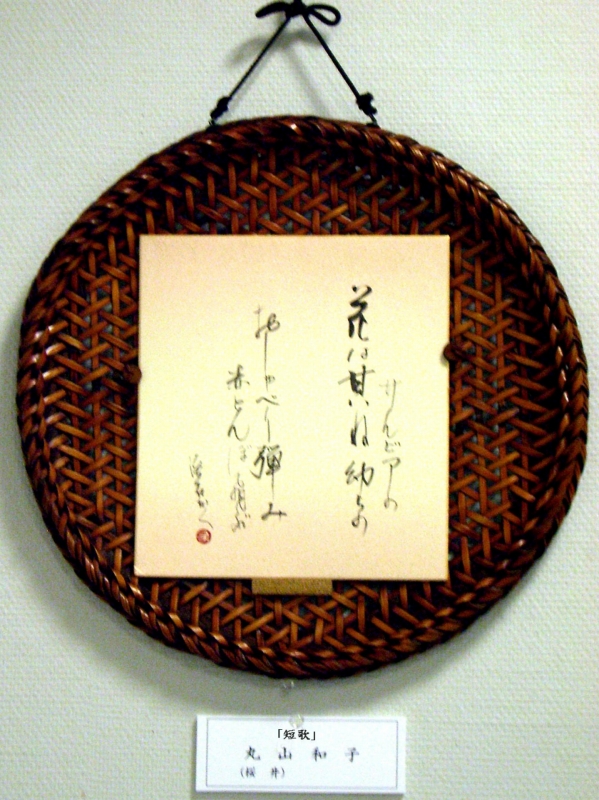 サルビアの
花は甘いね幼らの
おしゃべり弾み
赤とんぼ飛ぶ
「短歌」
丸山和子
(桜井)